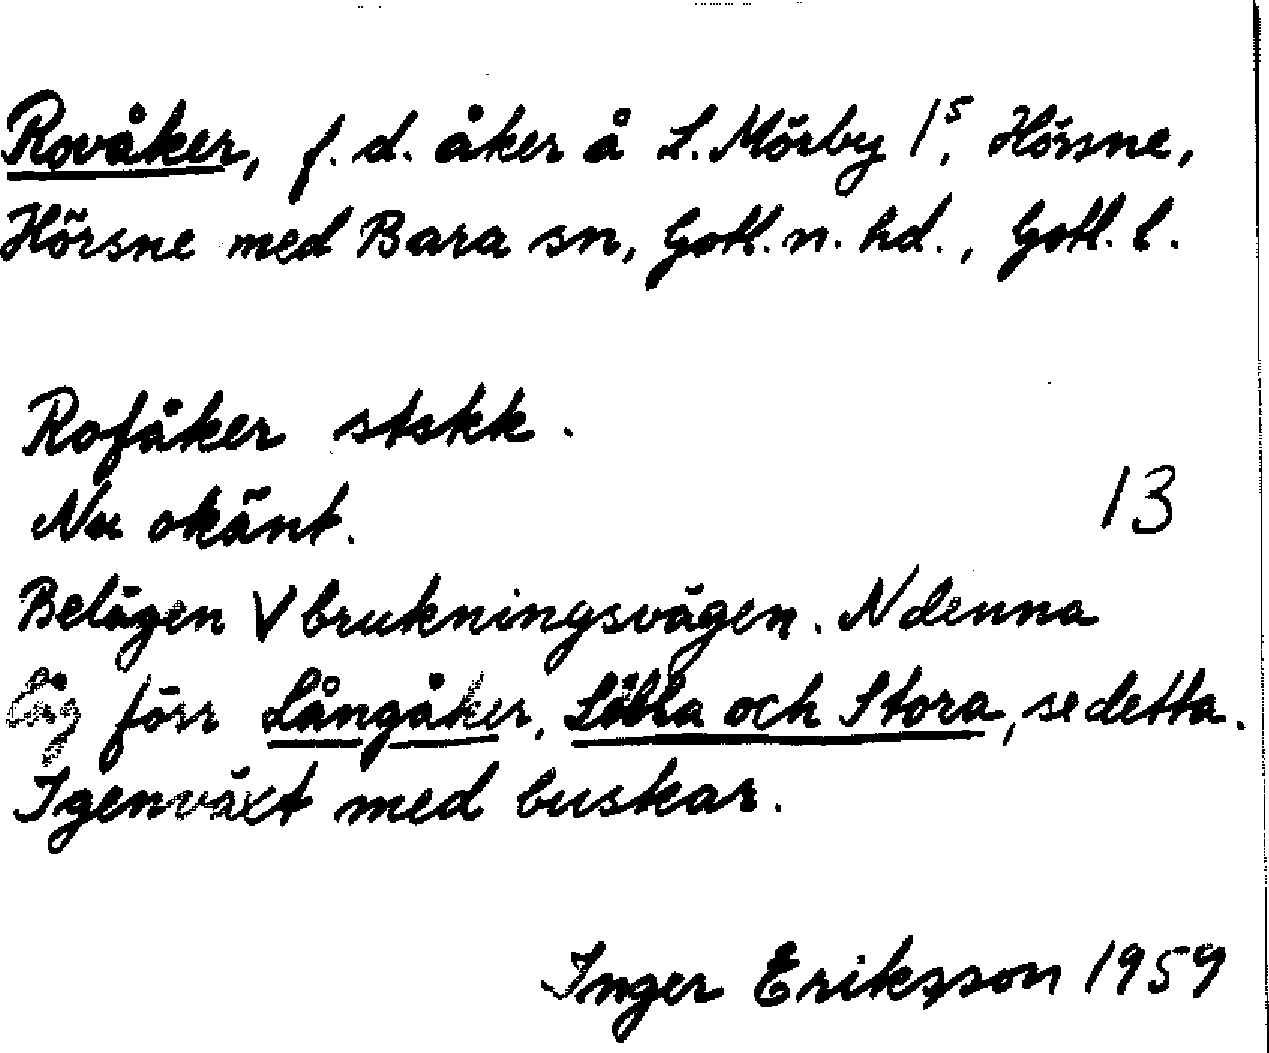 Rovåker, f. d. åker å L. Mörby 1s, Hörsne,
Hörsne med Bara sn, Gotl. n. hd., Gotl. l.
Rofåker stskk.
Nu okänt.
13
Belägen V brukningsvägen. N denna
låg förr Långåker, Lilla och Stora, se detta.
Igenväxt med buskar.
Inger Eriksson 1959